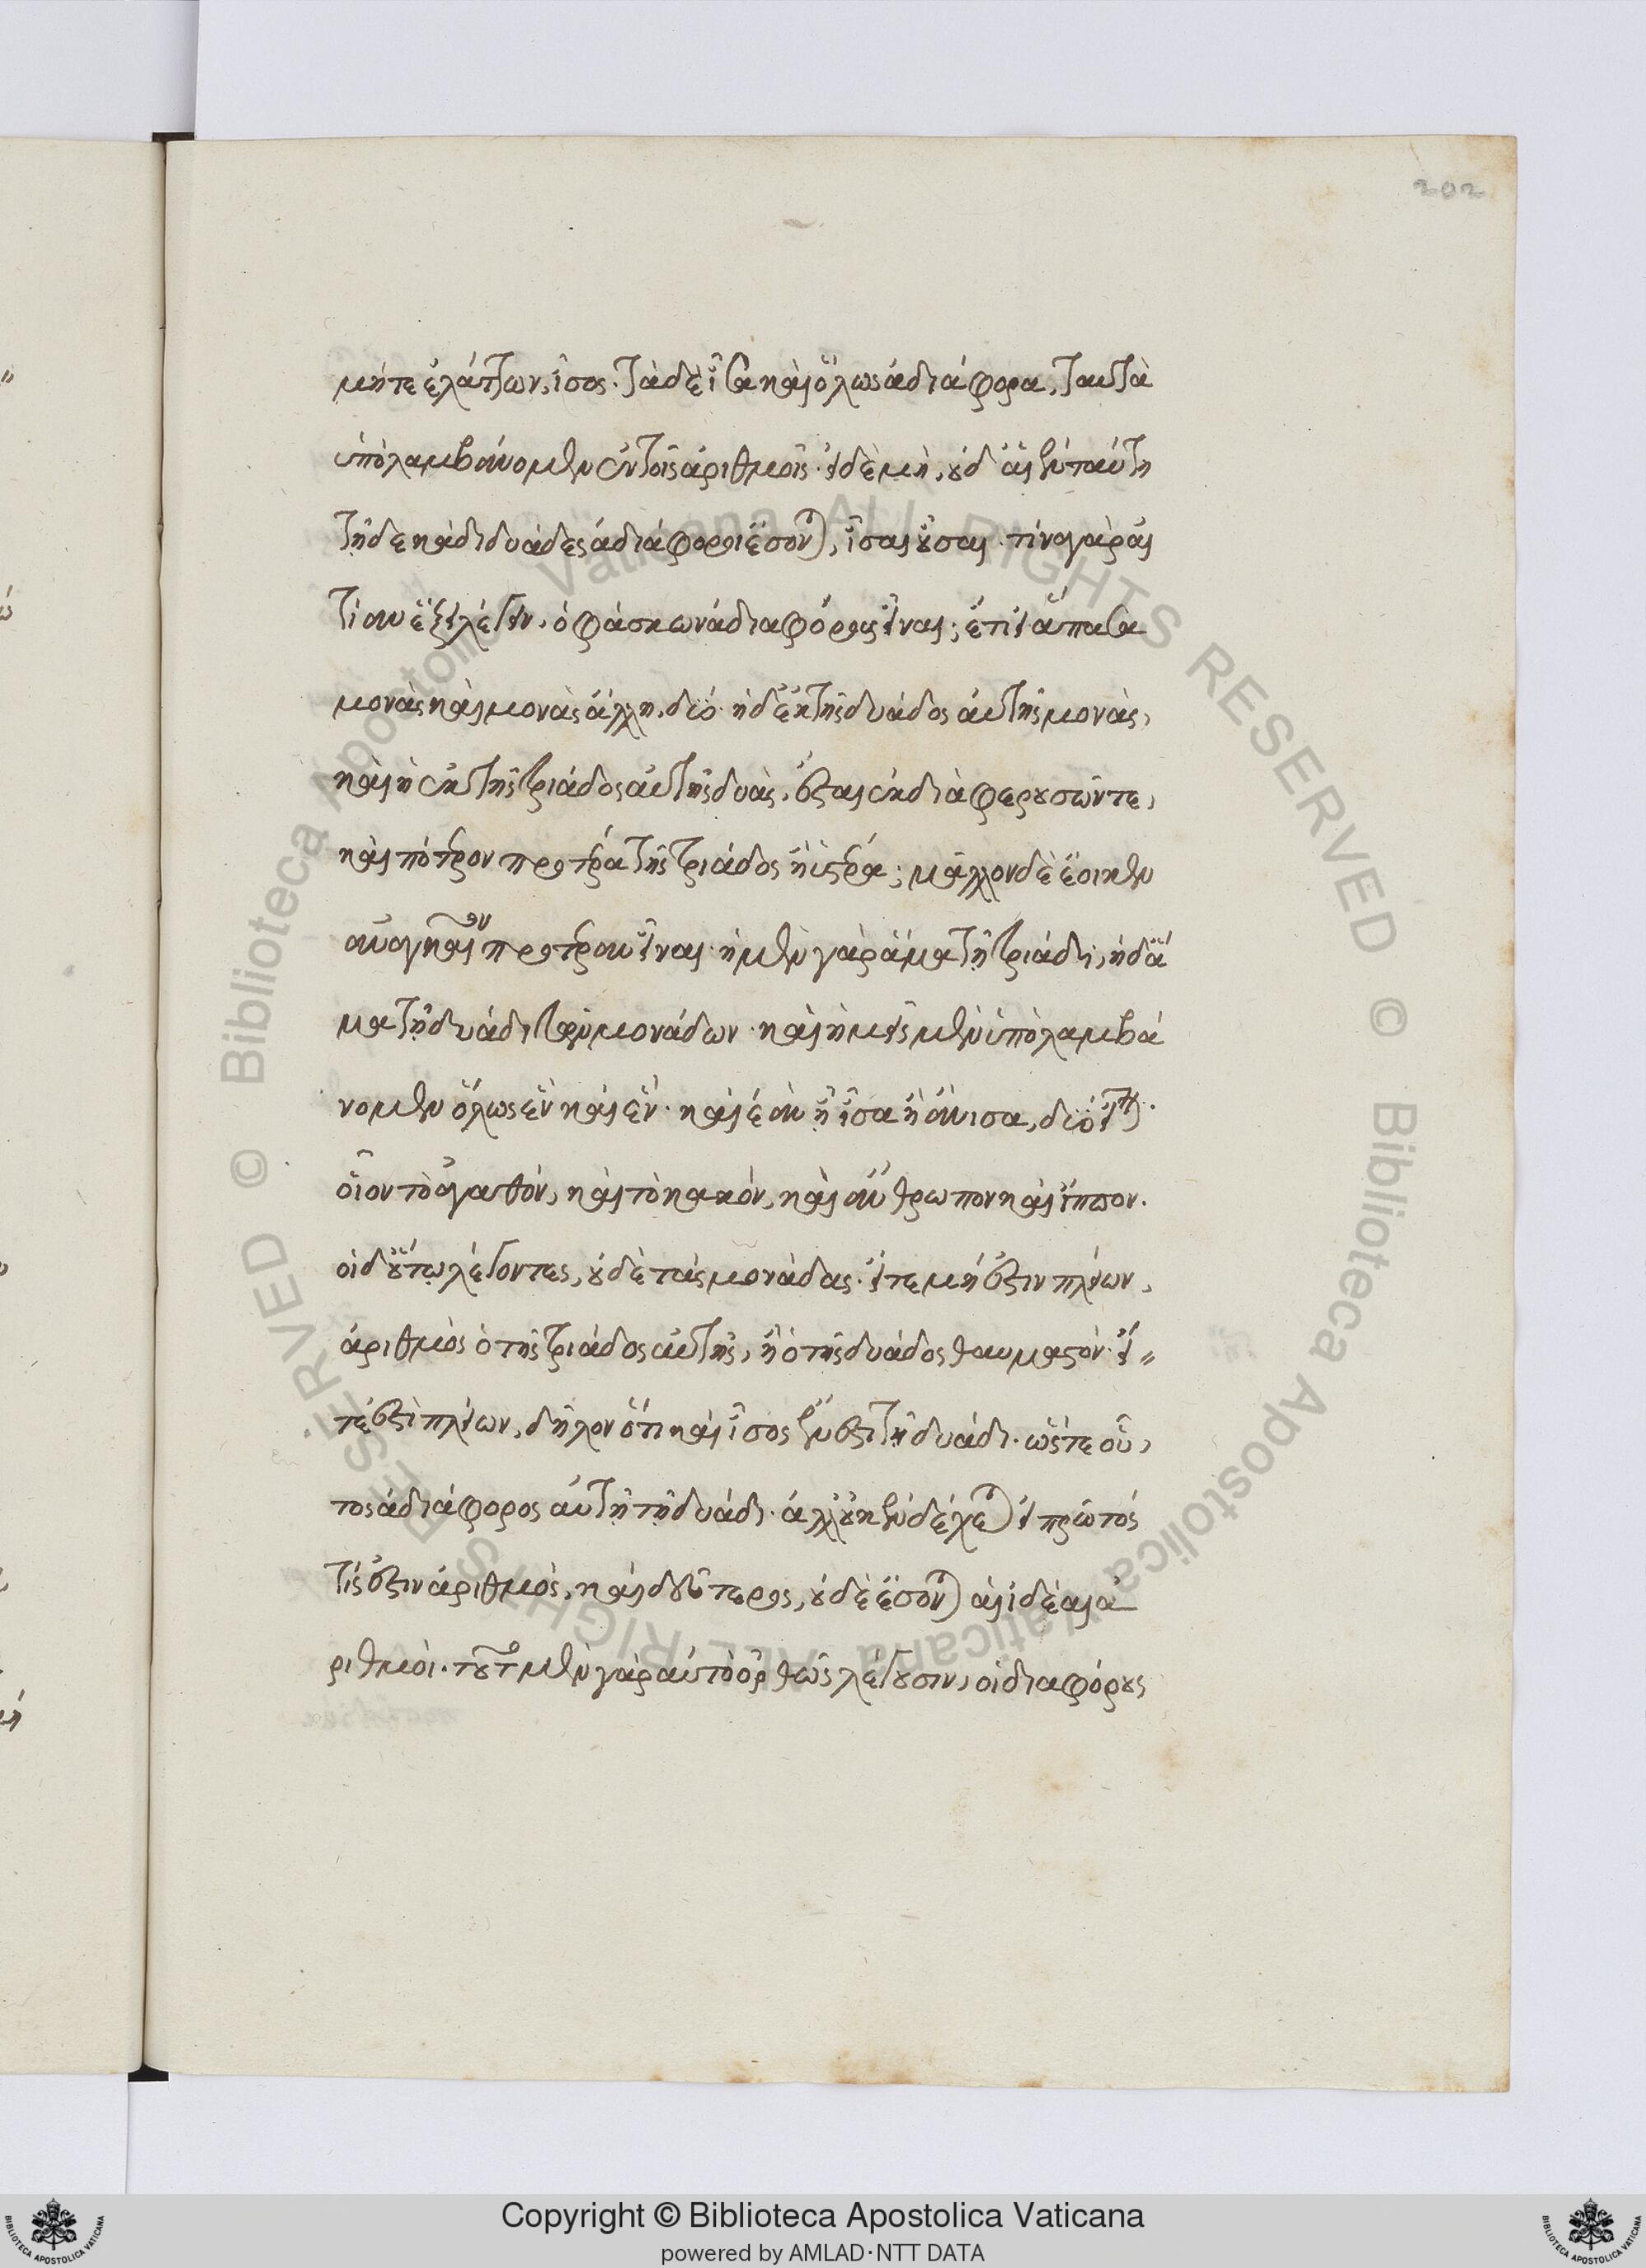 202
μήτε ἐλάττων, ἴσος. τὰ δὲ ἴσα καὶ ὅλως ἀδιάφορα, ταυτὰ
ὑπολαμβάνομεν ἐν τοῖς ἀριθμοῖς. εἰ δὲ μὴ, οὐδ' αἱ ἐν ταύτη
τῇ δεκάδι δυάδες ἀδιάφοροι ἔσονται, ἴσαι οὖσαι. τίνα γὰρ αἰ
τίαν ἕξει λέγειν, ὁ φάσκων ἀδιαφόρους εἶναι; ἔτι εἰ ἅπασα
μονὰς καὶ μονὰς ἄλλη, δύο. ἡ δ' ἐκ τῆς δυάδος αὐτῆς μονὰς,
καὶ ἡ ἐκ τῆς τριάδος αὐτῆς δυὰς, ἔσται ἐκ διαφερουσῶν τε,
καὶ πότερον προτέρα τῆς τριάδος ἢ ὑστέρα; μᾶλλον δὲ ἔοικεν
ἀναγκαῖον προτέραν εἶναι. ἡ μὲν γὰρ ἅμα τῇ τριάδι, ἡ δ' ἅ
μα τῇ δυάδι τῶν μονάδων. καὶ ἡμεῖς μὲν ὑπολαμβά
νομεν ὅλως ἓν καὶ ἓν. καὶ ἐὰν ᾖ ἴσα ἢ ἄνισα, δύο εἶναι.
οἷον τὸ ἀγαθόν, καὶ τὸ κακόν, καὶ ἄνθρωπον καὶ ἵππον.
οἱ δ' οὕτω λέγοντες, οὐδὲ τὰς μονάδας. εἴτε μή ἐστιν πλείων,
ἀριθμὸς ὁ τῆς τριάδος αὐτῆς, ἢ ὁ τῆς δυάδος θαυμαστόν. εἴ
τέ ἐστὶ πλείων, δῆλον ὅτι καὶ ἴσος ἔνεστι τῇ δυάδι. ὥστε οὗ,
τος ἀδιάφορος αὐτῇ τῇ δυάδι. ἀλλ' οὐκ ἐνδέχεται εἰ πρῶτός
τίς ἐστιν ἀριθμὸς, καὶ δεύτερος, οὐδὲ ἔσονται αἱ ἰδέαι ἀ
ριθμοὶ. τοῦτο μὲν γὰρ αὐτὸ ὀρθῶς λέγουσιν, οἱ διαφόρους
Copyright © Biblioteca Apostolica Vaticana
powered by AMLAD·NTT DATA